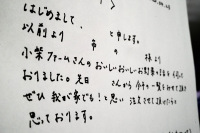 はじめまして、 と申します。
以前より 市 の 様より
小葉ファームさんのおいしいおいしいお野菜の
おりました。先日 さんから
ぜひ 我が家でも！と思い 注文させて頂
思っております。